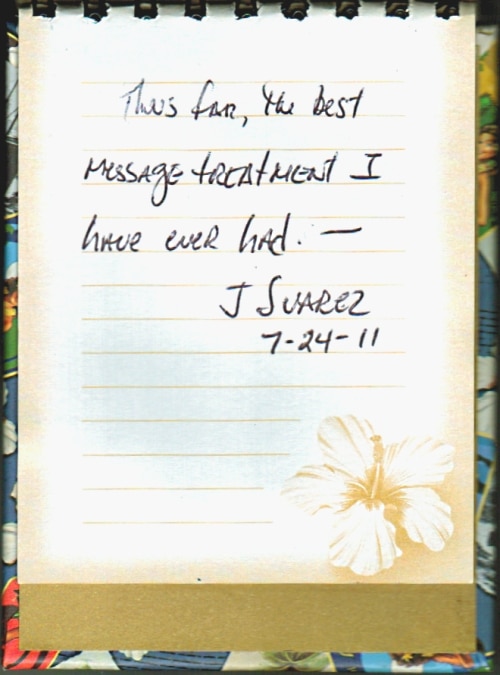 Thus far, the best
Message treatment I
have ever had. —
J Suarez
7-24-11